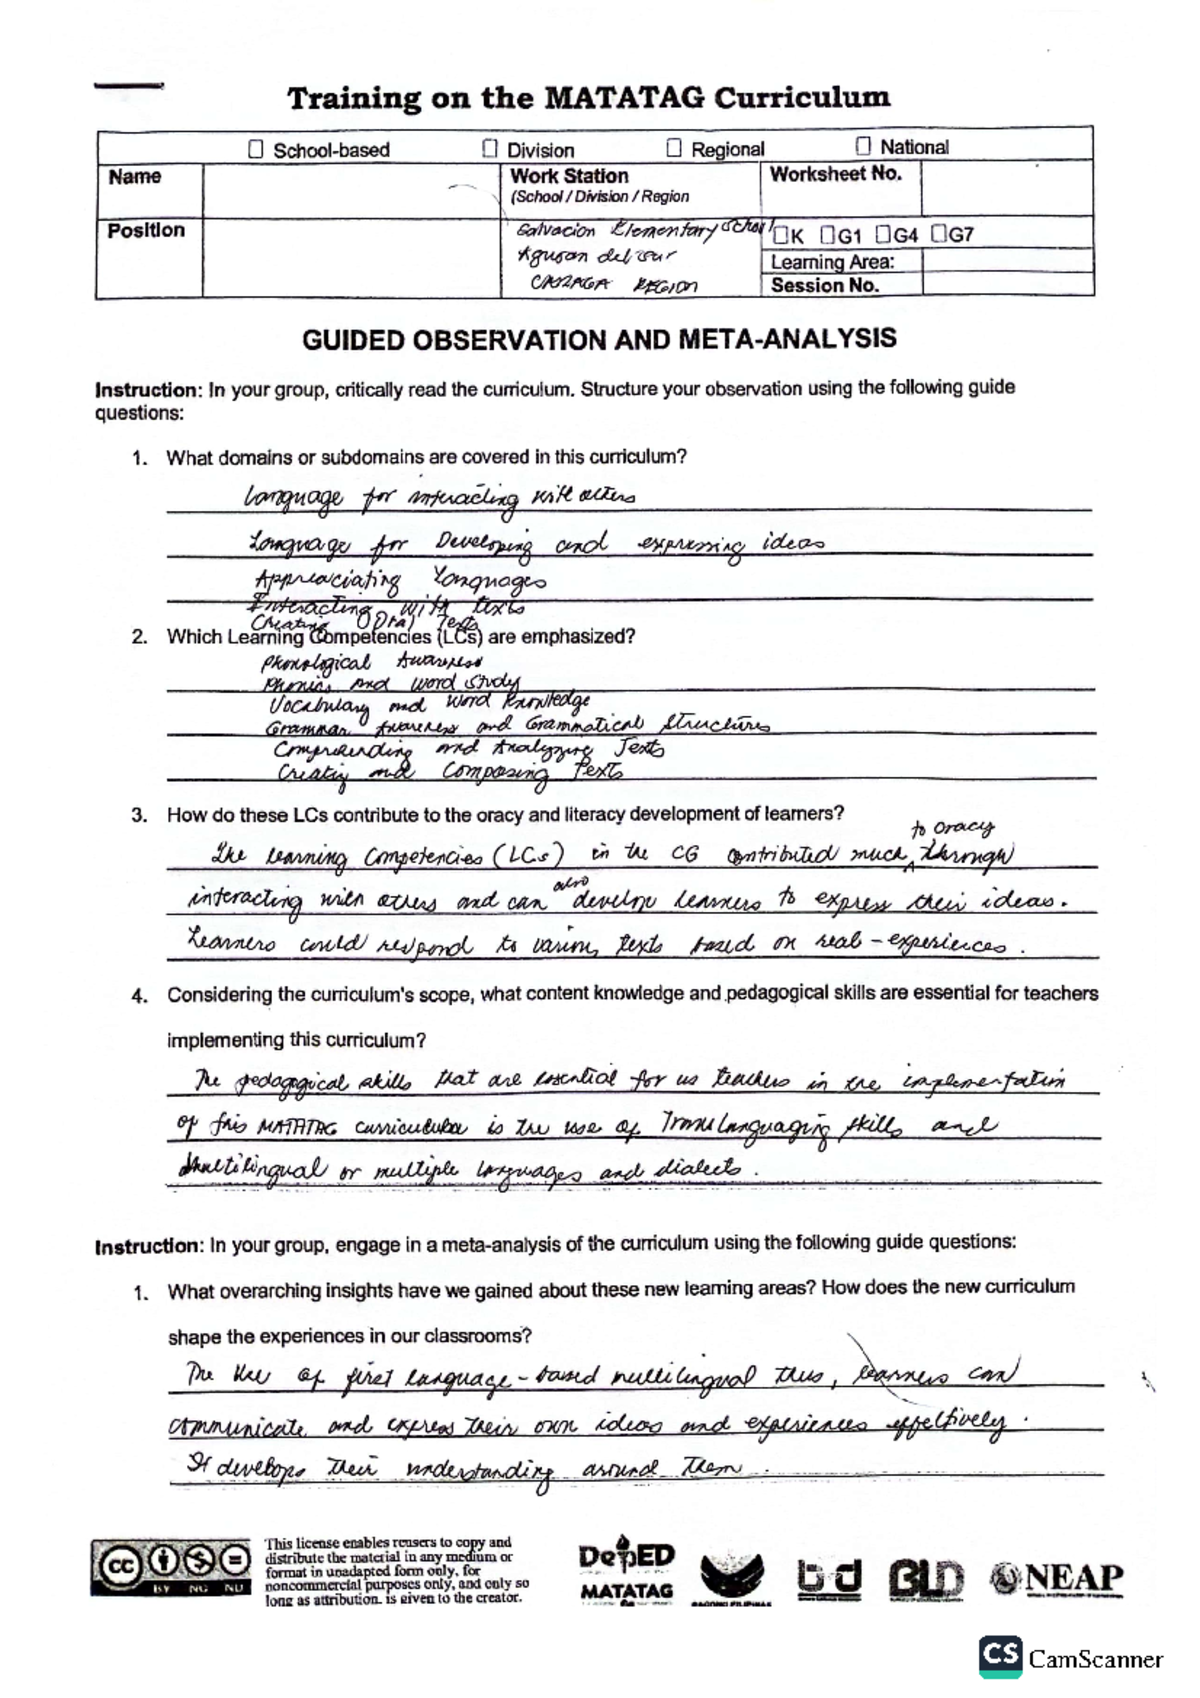 Training on the MATATAG Curriculum
☐ School-based ☐ Division ☐ Regional ☐ National
Name Work Station Worksheet No.
(School / Division / Region
Position Salvacion Elementary School ☐K ☐G1 ☐G4 ☐G7
Agusan del sur Learning Area:
CARAGA REGION Session No.
GUIDED OBSERVATION AND META-ANALYSIS
Instruction: In your group, critically read the curriculum. Structure your observation using the following guide
questions:
1. What domains or subdomains are covered in this curriculum?
Language for interacting with others
Language for Developing and expressing ideas
Appreaciating Languages
Interacting with texts
Creating Oral Texts
2. Which Learning Competencies (LCs) are emphasized?
Phonological Awareness
Phonics and word study
Vocabulary and Word Knowledge
Grammar Awareness and Grammatical Structures
Comprehending and Analyzing Texts
Creating and Composing Texts
3. How do these LCs contribute to the oracy and literacy development of learners?
to oracy
The learning Competencies (LCs) in the CG contributed much through
also
interacting with others and can develop learners to express their ideas.
Learners could respond to various texts based on real-experiences.
4. Considering the curriculum's scope, what content knowledge and pedagogical skills are essential for teachers
implementing this curriculum?
The pedagogical skills that are essential for us teachers in the implementation
of this MATATAG is the use of Translanguaging skills and
Multilingual or multiple languages and dialects.
Instruction: In your group, engage in a meta-analysis of the curriculum using the following guide questions:
1. What overarching insights have we gained about these new learning areas? How does the new curriculum
shape the experiences in our classrooms?
The Use of first language-based multilingual thus, learners can
communicate and express their own ideas and experiences effectively.
It develops their understanding around them.
This license enables reusers to copy and
distribute the material in any medium or
format in unadapted form only, for
noncommercial purposes only, and only so
long as attribution. is given to the creator.
cc
BY NC ND
DepED
MATATAG
BAGONG PILIPINAS
BLD
NEAP
CS CamScanner